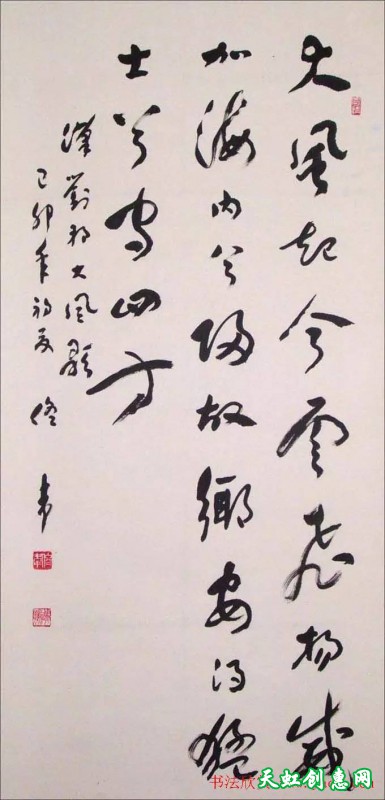 大風起兮雲飛揚威
加海内兮歸故鄉安得猛
士兮守四方
漢劉邦大風歌
己卯年初夏 佟韋
书法欣
天虹创惠网